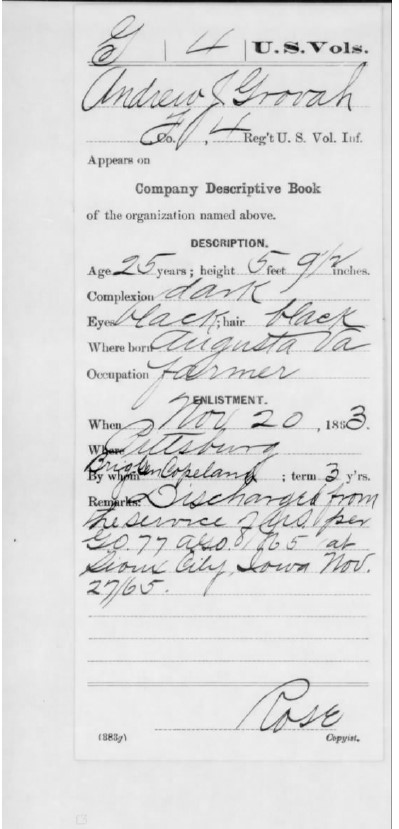 G | 4 | U.S.Vols.
Andrew J. Grovah
Co. F, 4 Reg't U. S. Vol. Inf.
Appears on
Company Descriptive Book
of the organization named above.
DESCRIPTION.
Age 25 years; height 5 feet 9 1/2 inches.
Complexion dark
Eyes black; hair black
Where born Augusta Va
Occupation farmer
ENLISTMENT.
When Nov 20, 1863.
Where Pittsburg
By whom Brig Gen Copeland; term 3 y'rs.
Remarks: Discharged from
the service U.S. per
G.O. 77 A.G.O. 8/65 at
Sioux City, Iowa Nov.
27/65.
Rose
(383g) Copyist.